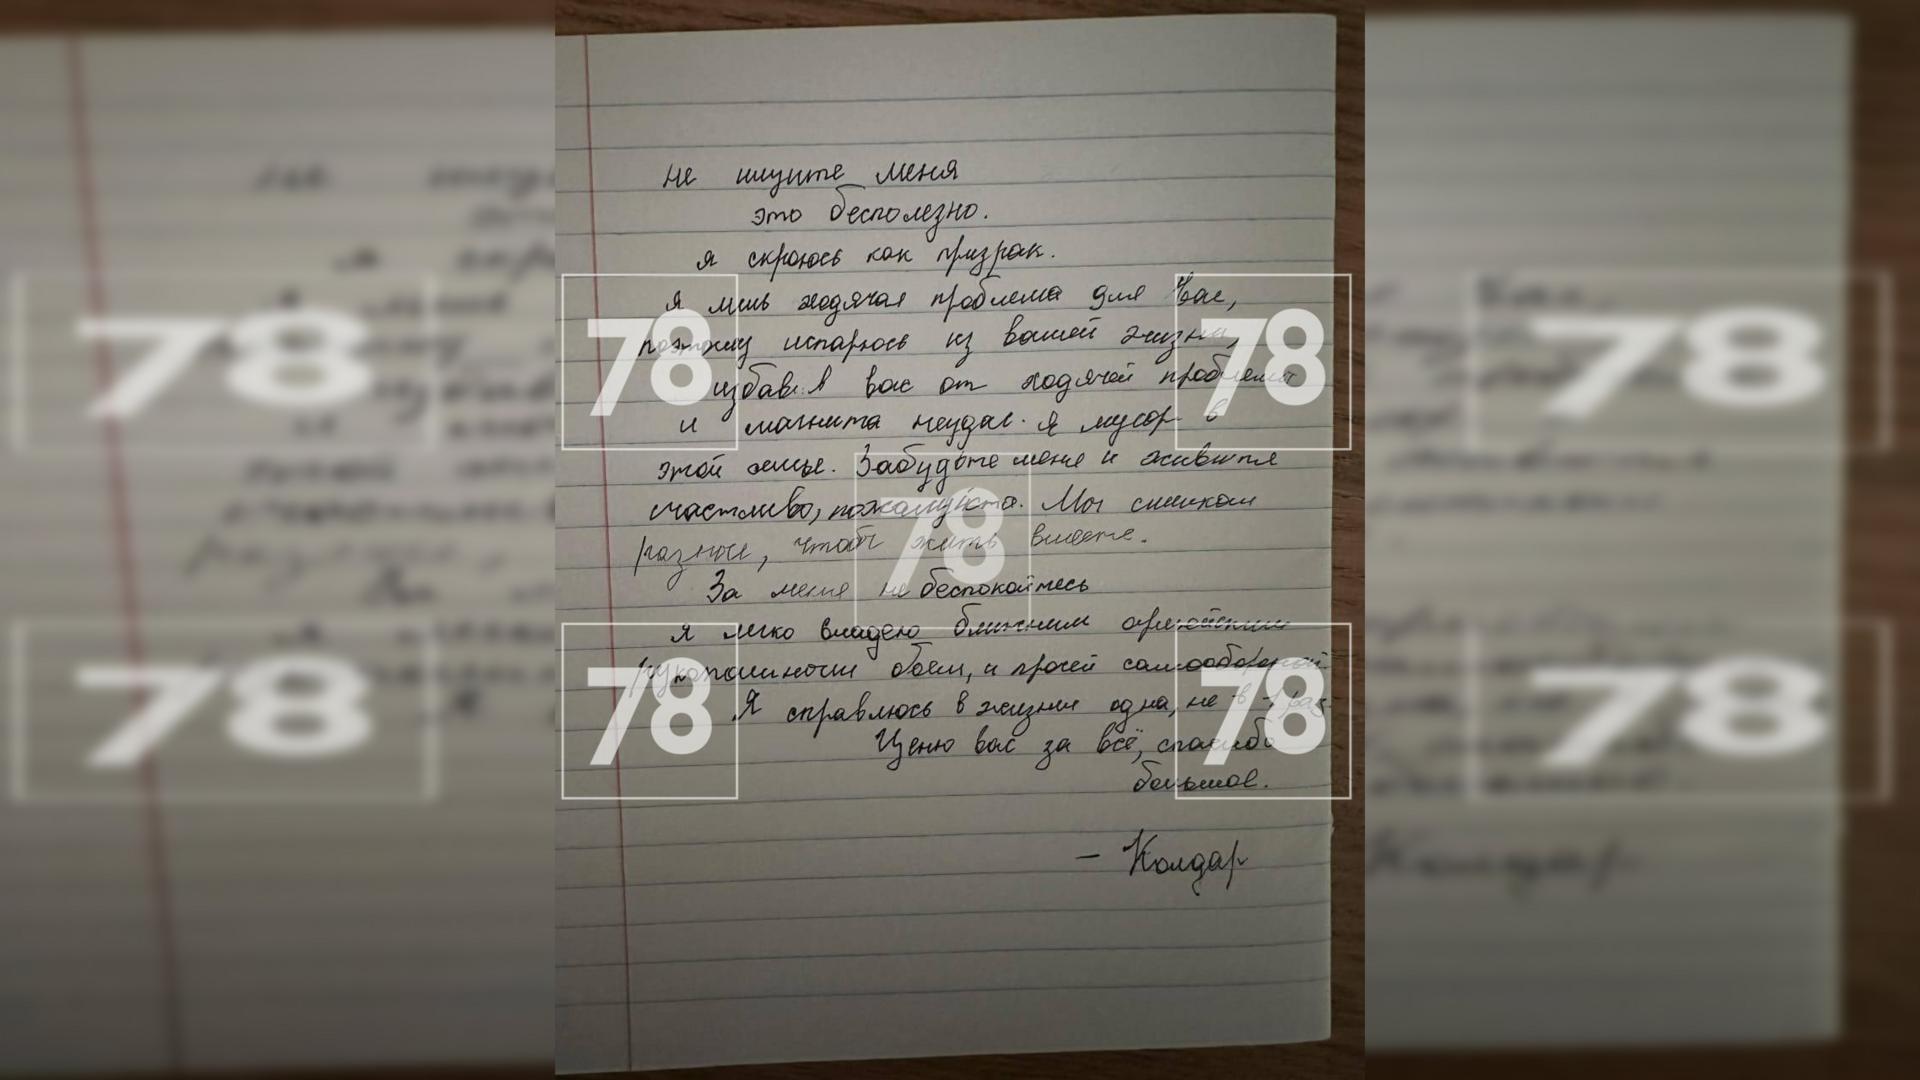 не ищите меня
это бесполезно.
я скроюсь как призрак.
Я лишь ходячая проблема для Вас,
поэтому испарюсь из вашей жизни,
избавив вас от ходячей проблемы
и магнита неудач. Я мусор в
этой семье. Забудьте меня и живите
счастливо, пожалуйста. Мы слишком
разные, чтобы жить вместе.
За меня не беспокойтесь
я легко владею ближним армейским
рукопашным боем, и прочей самообороной
Я справлюсь в жизни одна, не в -1 раз.
Ценю вас за всё, спасибо
большое.
— Колдар
78
78
78
78
78
78
78
78
78